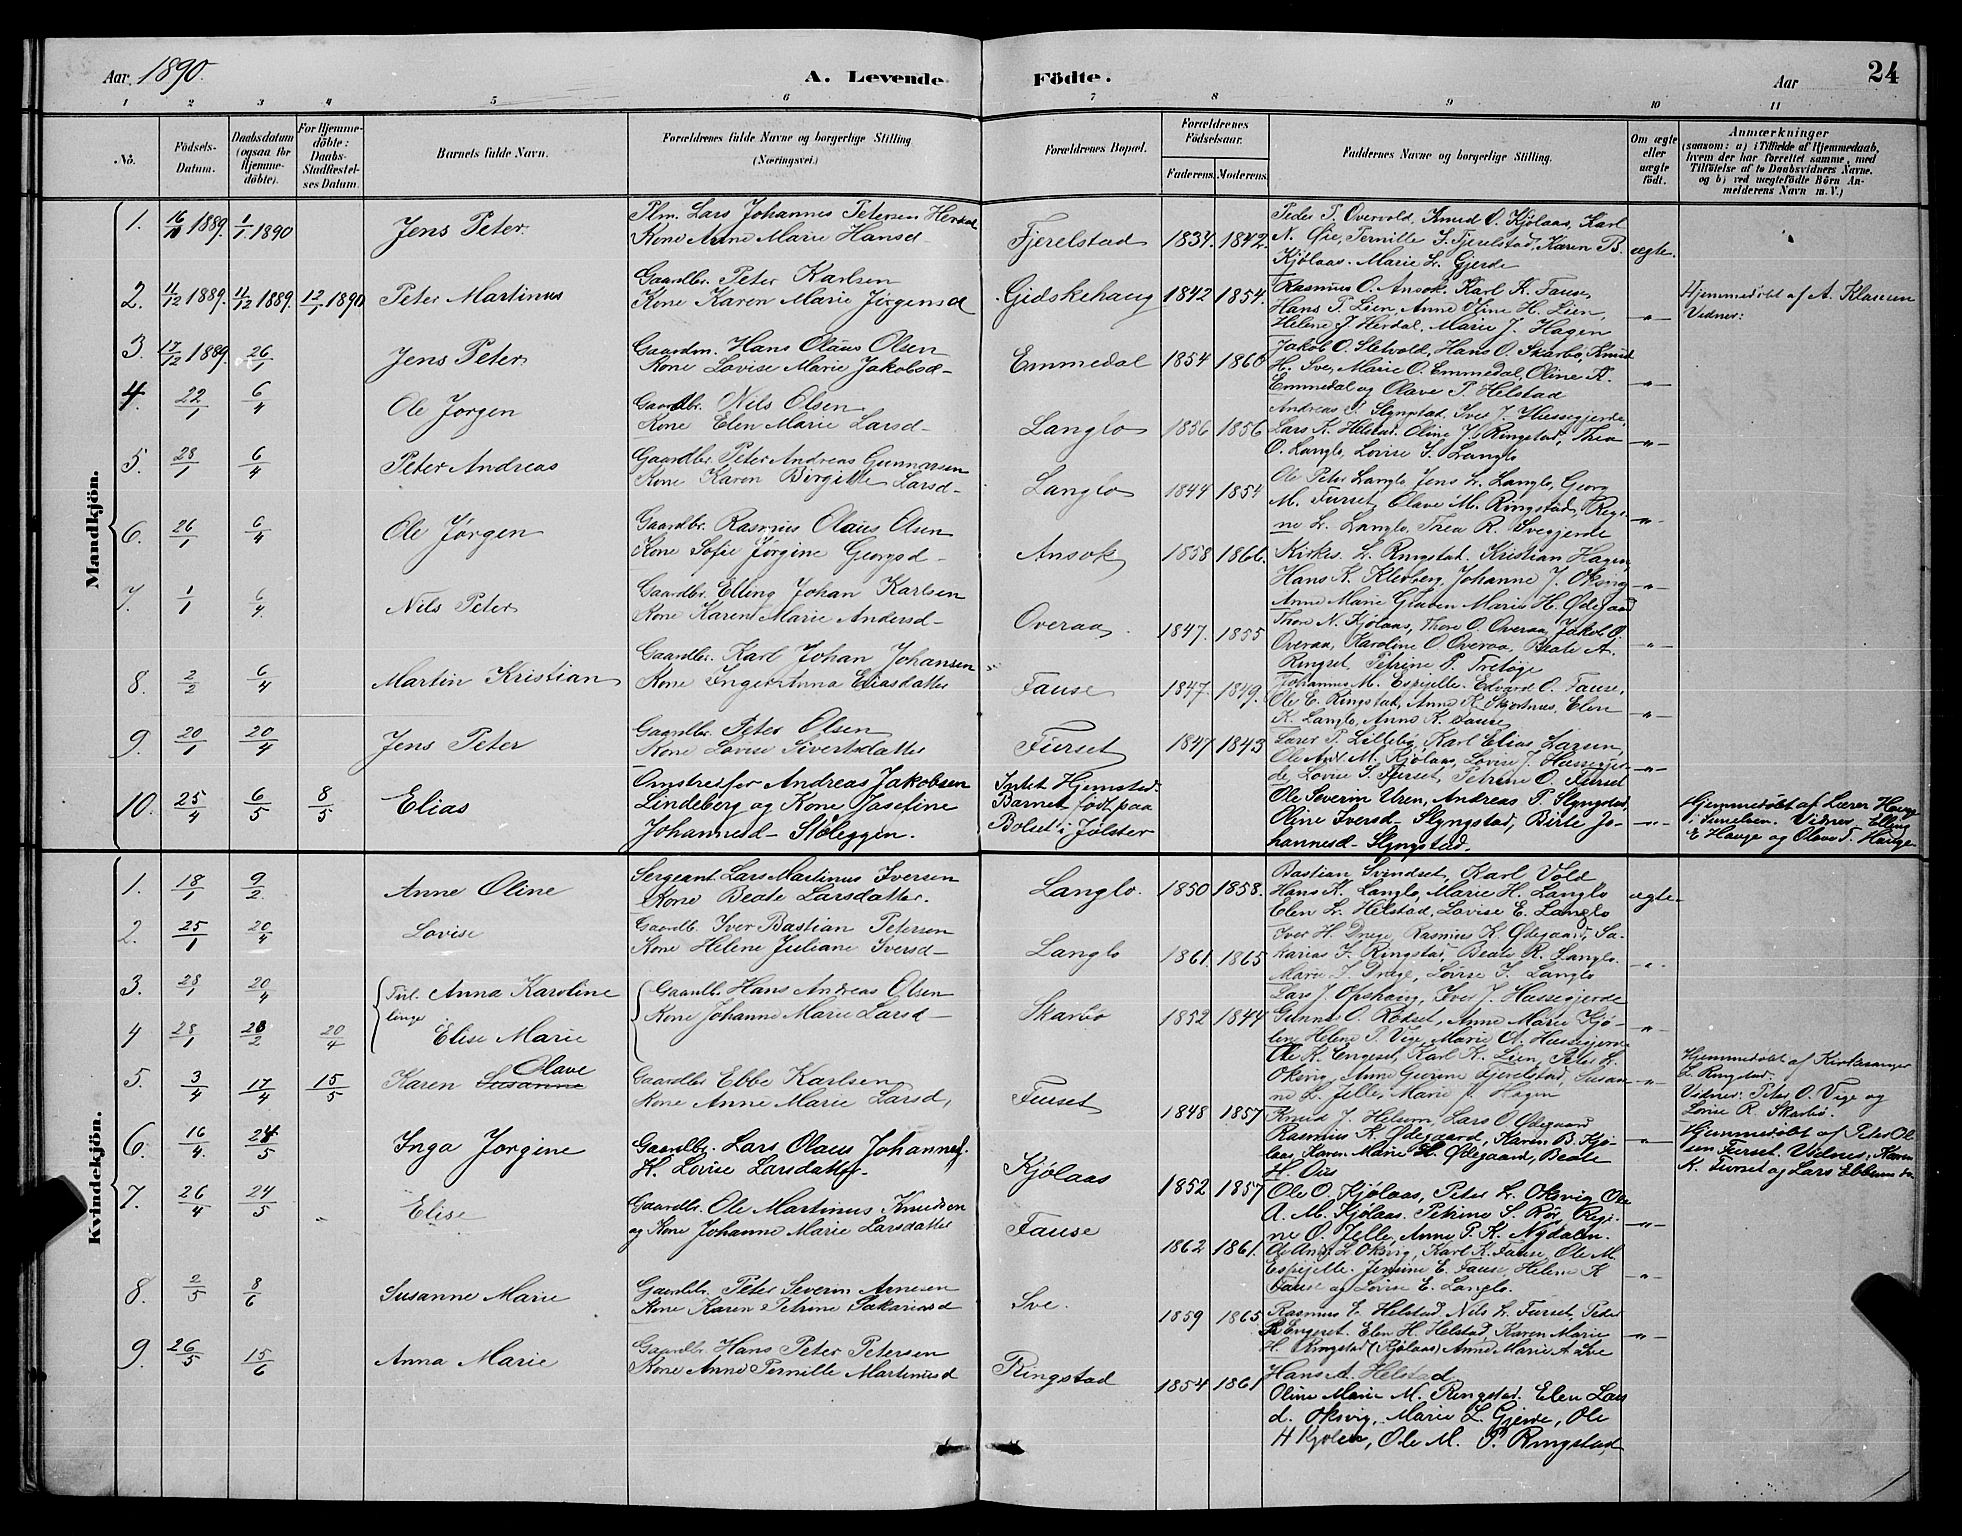 Aar 1890. A. Levende Födte. Aar 24
1 2 3 4 5 6 7 8 9 10 11
No. Födsels-Datum. Daabsdatum (ogsaa for Hjemme-döbte). For Hjemme-döbte: Daabs-Stadfæstelses Datum. Barnets fulde Navn. Forældrenes fulde Navne og borgerlige Stilling (Næringsvei.) Forældrenes Bopæl. Forældrenes Födselsaar. Faderens. Moderens. Faddernes Navne og borgerlige Stilling. Om ægte eller uægte födt. Anmærkninger (saasom: a) i Tilfælde af Hjemmedaab, hvem der har forrettet samme, med Tilföielse af to Daabsvidners Navne. og b) ved uægtefödte Börn Anmelderens Navn m. V.)
Mandkjön.
1. 16/11 1889. 1/1 1890 Jens Peter. Plm. Lars Johannes Petersen Herdal
Kone Anne Marie Hansd- Fjerelstad 1834. 1842. Peder P. Overvold, Knud O. Kjölaas, Karl
N. Øie, Pernille J. Fjerelstad, Karen B.
Kjölaas. Marie L. Gjerde ægte.
2. 11/12 1889. 11/12 1889. 12/1 1890 Peter Martinus Gaardbr. Peter Karlsen
Kone Karen Marie Jörgensd Gidskehaug 1842 1854. Rasmus O. Ansok. Karl K. Fause,
Hans P. Lien, Anne Oline H. Lien,
Helene J. Herdal, Marie J. Hagen -"- Hjemmedöbt af A. Klausen
Vidner:
3. 17/12 1889. 26/1 Jens Peter Gaardm. Hans Olaus Olsen
Kone Lovise Marie Jakobsd- Emmedal 1854 1860 Jakob O. Sletvold, Hans O. Skarbö, Knud
H. Sve, Marie O. Emmedal, Oline K.
Emmedal og Olave P. Helstad -"-
4. 22/1 6/4 Ole Jörgen Gaardbr. Nils Olsen
Kone Elen Marie Larsd- Langlo 1856 1856 Andreas P. Slyngstad. Iver J. Hussegjerde,
Lars K. Helstad. Oline J. Ringstad, Thea
O. Langlo, Lovise J. Langlo -"-
5. 28/1 6/4 Peter Andreas Gaardbr. Peter Andreas Gunnarsen
Kone Karen Birgitte Larsd- Langlo 1844 1854 Ole Peter Langlo, Jens L. Langlo, Georg
M. Furset, Olave M. Ringstad, Regi-
ne L. Langlo, Thea R. Svegjerde -"-
6. 26/1 6/4 Ole Jörgen Gaardbr. Rasmus Olaus Olsen
Kone Sofie Jörgine Georgsd- Ansok 1858 1866. Kirkes. L. Ringstad. Kristian Hagen,
Hans K. Klevberg, Johanne J. Oksvig
Anne Marie Graven Marie H. Ødegaard -"-
7. 1/1 6/4. Nils Peter Gaardbr. Elling Johan Karlsen
Kone Karen Marie Andersd- Overaa. 1847. 1855 Thore N. Kjölaas, Thore O. Overaa, Jakob O.
Overaa, Karoline O Overaa, Beate A.
Ringset, Petrine P. Tretöge -"-
8. 2/2 6/4 Martin Kristian Gaardbr. Karl Johan Johansen
Kone Inger Anna Eliasdatter Fause 1847. 1849. Johannes M. Espejelle. Edvard O. Fause,
Ole E. Ringstad, Anne K. Skotnes, Elen
K. Langlo, Anne K. Fause -"-
9. 20/1 20/4 Jens Peter Gaardbr. Peter Olsen
Kone Lovise Sivertsdatter Furset 1847 1843 Lærer P. Lillebö, Karl Elias Larsen,
Ole And. M. Kjölaas, Lovise J. Hussegjer-
de, Lovise S. Furset, Petrine O. Furset -"-
10. 25/4 6/5 8/5 Elias Omstreifer Andreas Jakobsen
Lindeberg og Kone Josefine
Johannesd- Stöleggen. Intet Hjemsted.
Barnet födt paa
Bolset i Jölster Ole Severin Uren, Andreas P. Slyngstad,
Oline Iversd- Slyngstad, Birte Jo-
hannesd- Slyngstad. -"- Hjemmedöbt af Lærer Hauge
i Sunelven. Vidner Elling
E Hauge og Olave P. Hauge
Kvindekjön.
1. 18/1 9/2. Anne Oline Sergeant Lars Martinus Iversen
Kone Beate Larsdatter. Langlo. 1850 1858. Bastian Svindset, Karl Vold
Hans K. Langlo, Marie H. Langlo
Elen L. Helstad, Lovise E. Langlo ægte-
2. 25/1 20/4 Lovise Gaardb. Iver Bastian Petersen
Kone Helene Juliane Iversd- Langlo 1861. 1865 Iver H. Drege, Rasmus K. Ødegaard, Sa-
karias J. Ringstad, Beate R. Langlo.
Marie J. Drege, Lovise J. Langlo -"-
3. 28/1 20/4 Tvil- Anna Karoline Gaardb. Hans Andreas Olsen
linger
4 28/1 23/2 20/4 Elise Marie Kone Johanne Marie Larsd- Skarbö 1852 1844 Lars J. Opshaug, Iver J. Hussegjerde
Gunner O. Rödset, Anne Marie Kjö-
len Helene P. Vige, Marie A. Hussegjerde -"-
5. 3/4 17/4 15/5 Karen Susanne Olave Gaardbr Ebbe Karlsen
Kone Anne Marie Larsd, Furset 1848 1857 Ole K. Engeset, Karl K. Lien, Peter L.
Oksvig, Anne Gurine Fjerelstad, Susan-
ne L. Jelle, Marie J. Hagen -"- Hjemmedöbt af Kirkesanger
L. Ringstad.
Vidner: Peter O. Vige og
Lovise R. Skarbö.
6. 16/4. 24/5 Inga Jorgine Gaardbr. Lars Olaus Johannes.
H. Lovise Larsdatter- Kjölaas 1852 1857 Knud J. Helsem, Lars O Ødegaard
Rasmus K. Ødegaard, Karen B. Kjö-
laas, Karen Marie H. Ødegaard, Beate
H. Øvs -"- Hjemmedöbt af Peter Ol-
sen Furset. Vidnes: Karen
K. Furset og Lars Ebbesen do
7. 26/4 24/5 Elise Gaardbr. Ole Martinus Knudsen
og Kone Johanne Marie Larsdatter Fause 1862 1861. Ole O. Kjölaas, Peter L. Oksvig, Ole
A. M. Kjölaas, Petrine S. Rör, Regi-
ne O. Jelle, Anne P. K. Nydalen. -"-
8. 2/5 8/6 Susanne Marie Gaardbr. Peter Severin Arnesen
Kone Karen Petrine Sakariasd Sve. 1859 1865 Ole And. L. Oksvig, Karl K. Fause, Ole M.
Espejelle. Jensine E. Fause, Helene K
Fause og Lovise E. Langlo. -"-
9. 26/5 15/6 Anna Marie Gaardbr. Hans Peter Petersen
Kone Anne Pernille Martinusd Ringstad 1854 1861 Rasmus L. Helstad, Nils L. Furset, Peder
R Engeset. Elen H. Helstad, Karen Marie
H. Ringstad (Kjölaas) Anne Marie A. Sve -"-
Hans A. Helstad
Oline Marie M. Ringstad. Elen Lars
d. Oksvig, Marie L. Gjerde, Ole
H Kjölen, Ole M. P. Ringstad